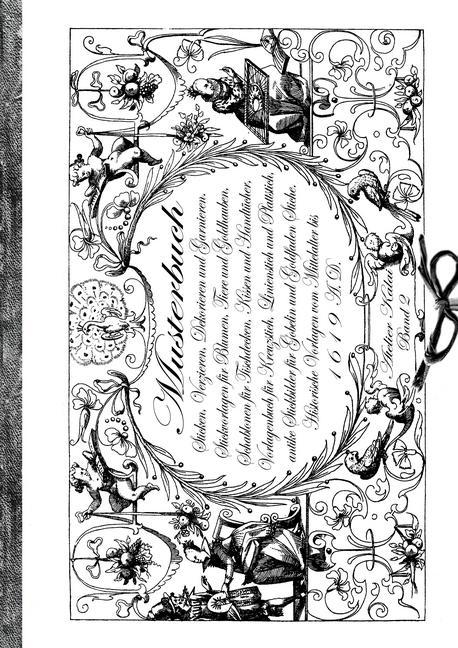 Musterbuch
Sticken, Verzieren, Dekorieren und Garnieren.
Stickvorlagen für Blumen, Tiere und Goldhauben.
Schablonen für Tischdecken, Kissen und Handtücher,
Vorlagenbuch für Kreuzstich, Linienstich und Plattstich,
antike Stickbilder für Gobelin und Goldfaden Sticke.
Historische Vorlagen vom Mittelalter bis
1619 A.D.
Atelier Kaluza
Band 2